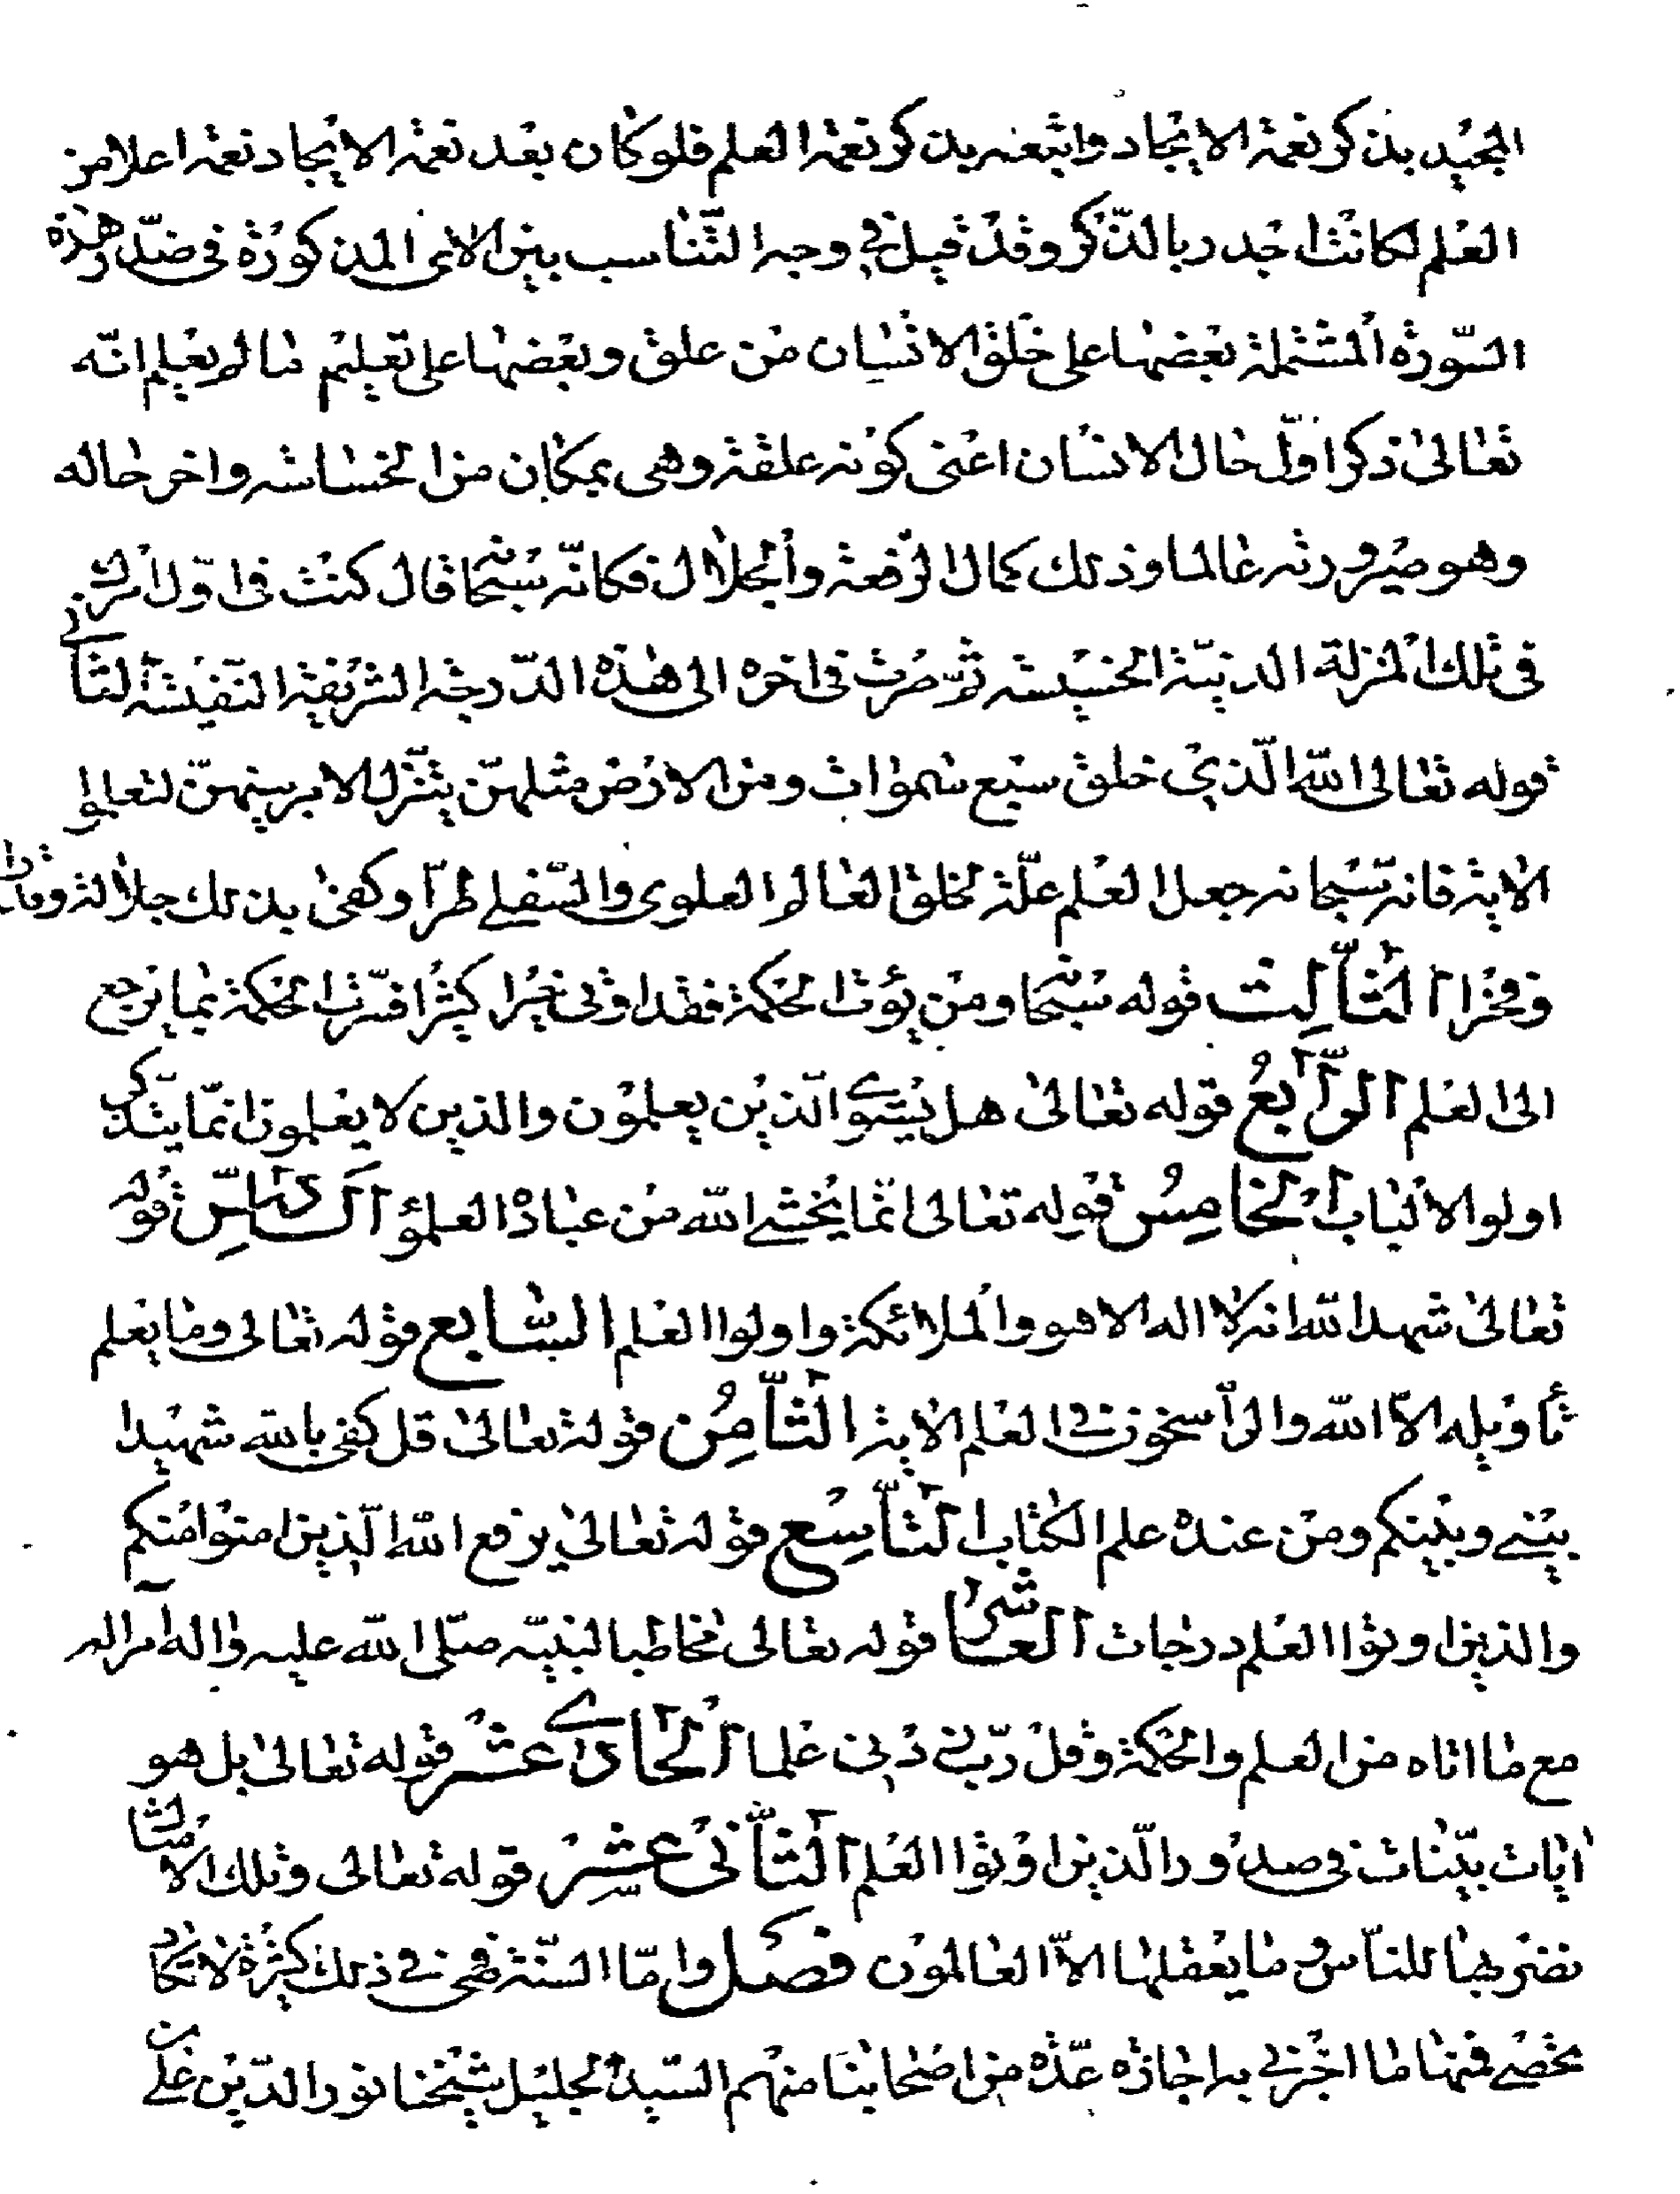 المجيد بذكر نعمة الايجاد واتبعه بذكر نعمة العلم فلو كان بعد نعمة الايجاد نعمة اعلا من
العلم لكانت اجدر بالذّكر وقد قيل في وجه التّناسب بين الاى المذكورة في صدر هذه
السّورة المشتملة بعضها على خلق الانسان من علق وبعضها على تعليم ما لم يعلم انّه
تعالى ذكر اوّل حال الانسان اعنى كونه علقة وهى بمكان من الخساسة واخر حاله
وهو صيرورته عالما وذلك كمال الرّفعة والجلال فكانّه سبحانه قال كنت في اوّل امرك
في تلك المنزلة الدنيّة الخسيسة ثمّ صرت في اخره الى هذه الدّرجة الشريفة النّفيسة الثّانى
قوله تعالى اللّه الّذي خلق سبع سموات ومن الارض مثلهنّ يتنزّل الامر بينهنّ لتعلموا
الاية فانه سبحانه جعل العلم علّة لخلق العالم العلوي والسّفلي طرّا وكفى بذلك جلالة
وفخرا الثّالث قوله سبحانه ومن يؤت الحكمة فقد اوتى خيرا كثيرا فسّرت الحكمة بما يرجع
الى العلم الرّابع قوله تعالى هل يستوي الّذين يعلمون والذين لا يعلمون انّما يتذكر
اولو الالباب الخامس قوله تعالى انّما يخشى اللّه من عباده العلمؤ السّادس قوله
تعالى شهد اللّه انه لا اله الا هو والملائكة واولوا العلم السّابع قوله تعالى وما يعلم
تأويله الاّ اللّه والرّاسخون في العلم الاية الثّامن قوله تعالى قل كفى باللّه شهيدا
بيني وبينكم ومن عنده علم الكتاب التّاسع قوله تعالى يرفع اللّه الّذين امنوا منكم
والذين اوتوا العلم درجات العاشر قوله تعالى مخاطبا لنبيّه صلّى اللّه عليه واله امرا له
مع ما اتاه من العلم والحكمة وقل ربّ زدنى علما الحادي عشر قوله تعالى بل هو
ايات بيّنات في صدور الّذين اوتوا العلم الثّانى عشر قوله تعالى وتلك الامثال
نضربها للنّاس وما يعقلها الاّ العالمون فصل وامّا السّنّة فهى في ذلك كثيرة لا تكاد
تحصى فمنها ما اخبرنى به اجازة عدّة من اصحابنا منهم السّيد الجليل شيخنا نور الدّين على بن